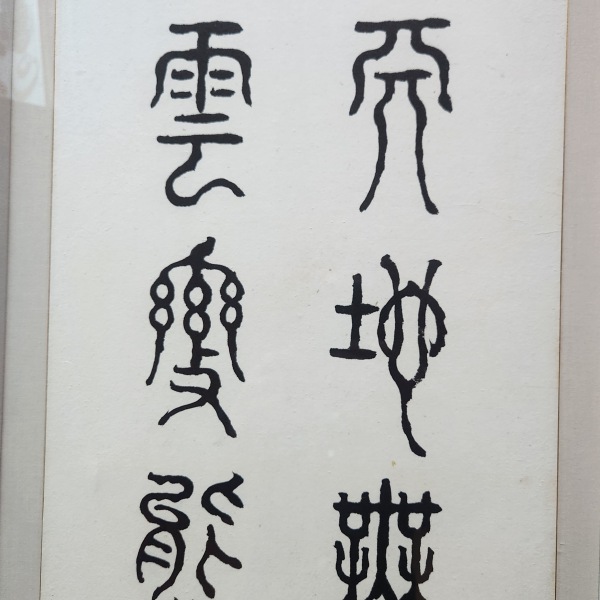 天地無
雲變態